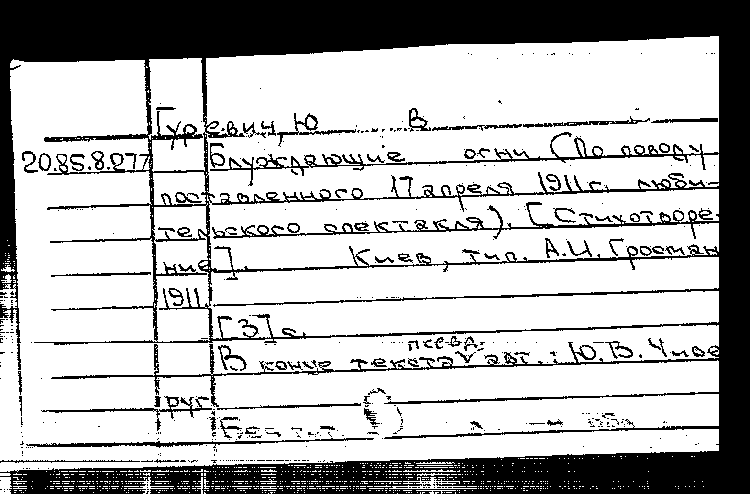 Гуревич, Ю В
20.85.8.277 Блуждающие огни (По поводу
поставленного 17 апреля 1911 г. люби-
тельского спектакля). [Стихотворе-
ние]. Киев, тип. А.И. Гросман
1911.
[3] с.
псевд.
В конце текста авт.: Ю.В.
рус